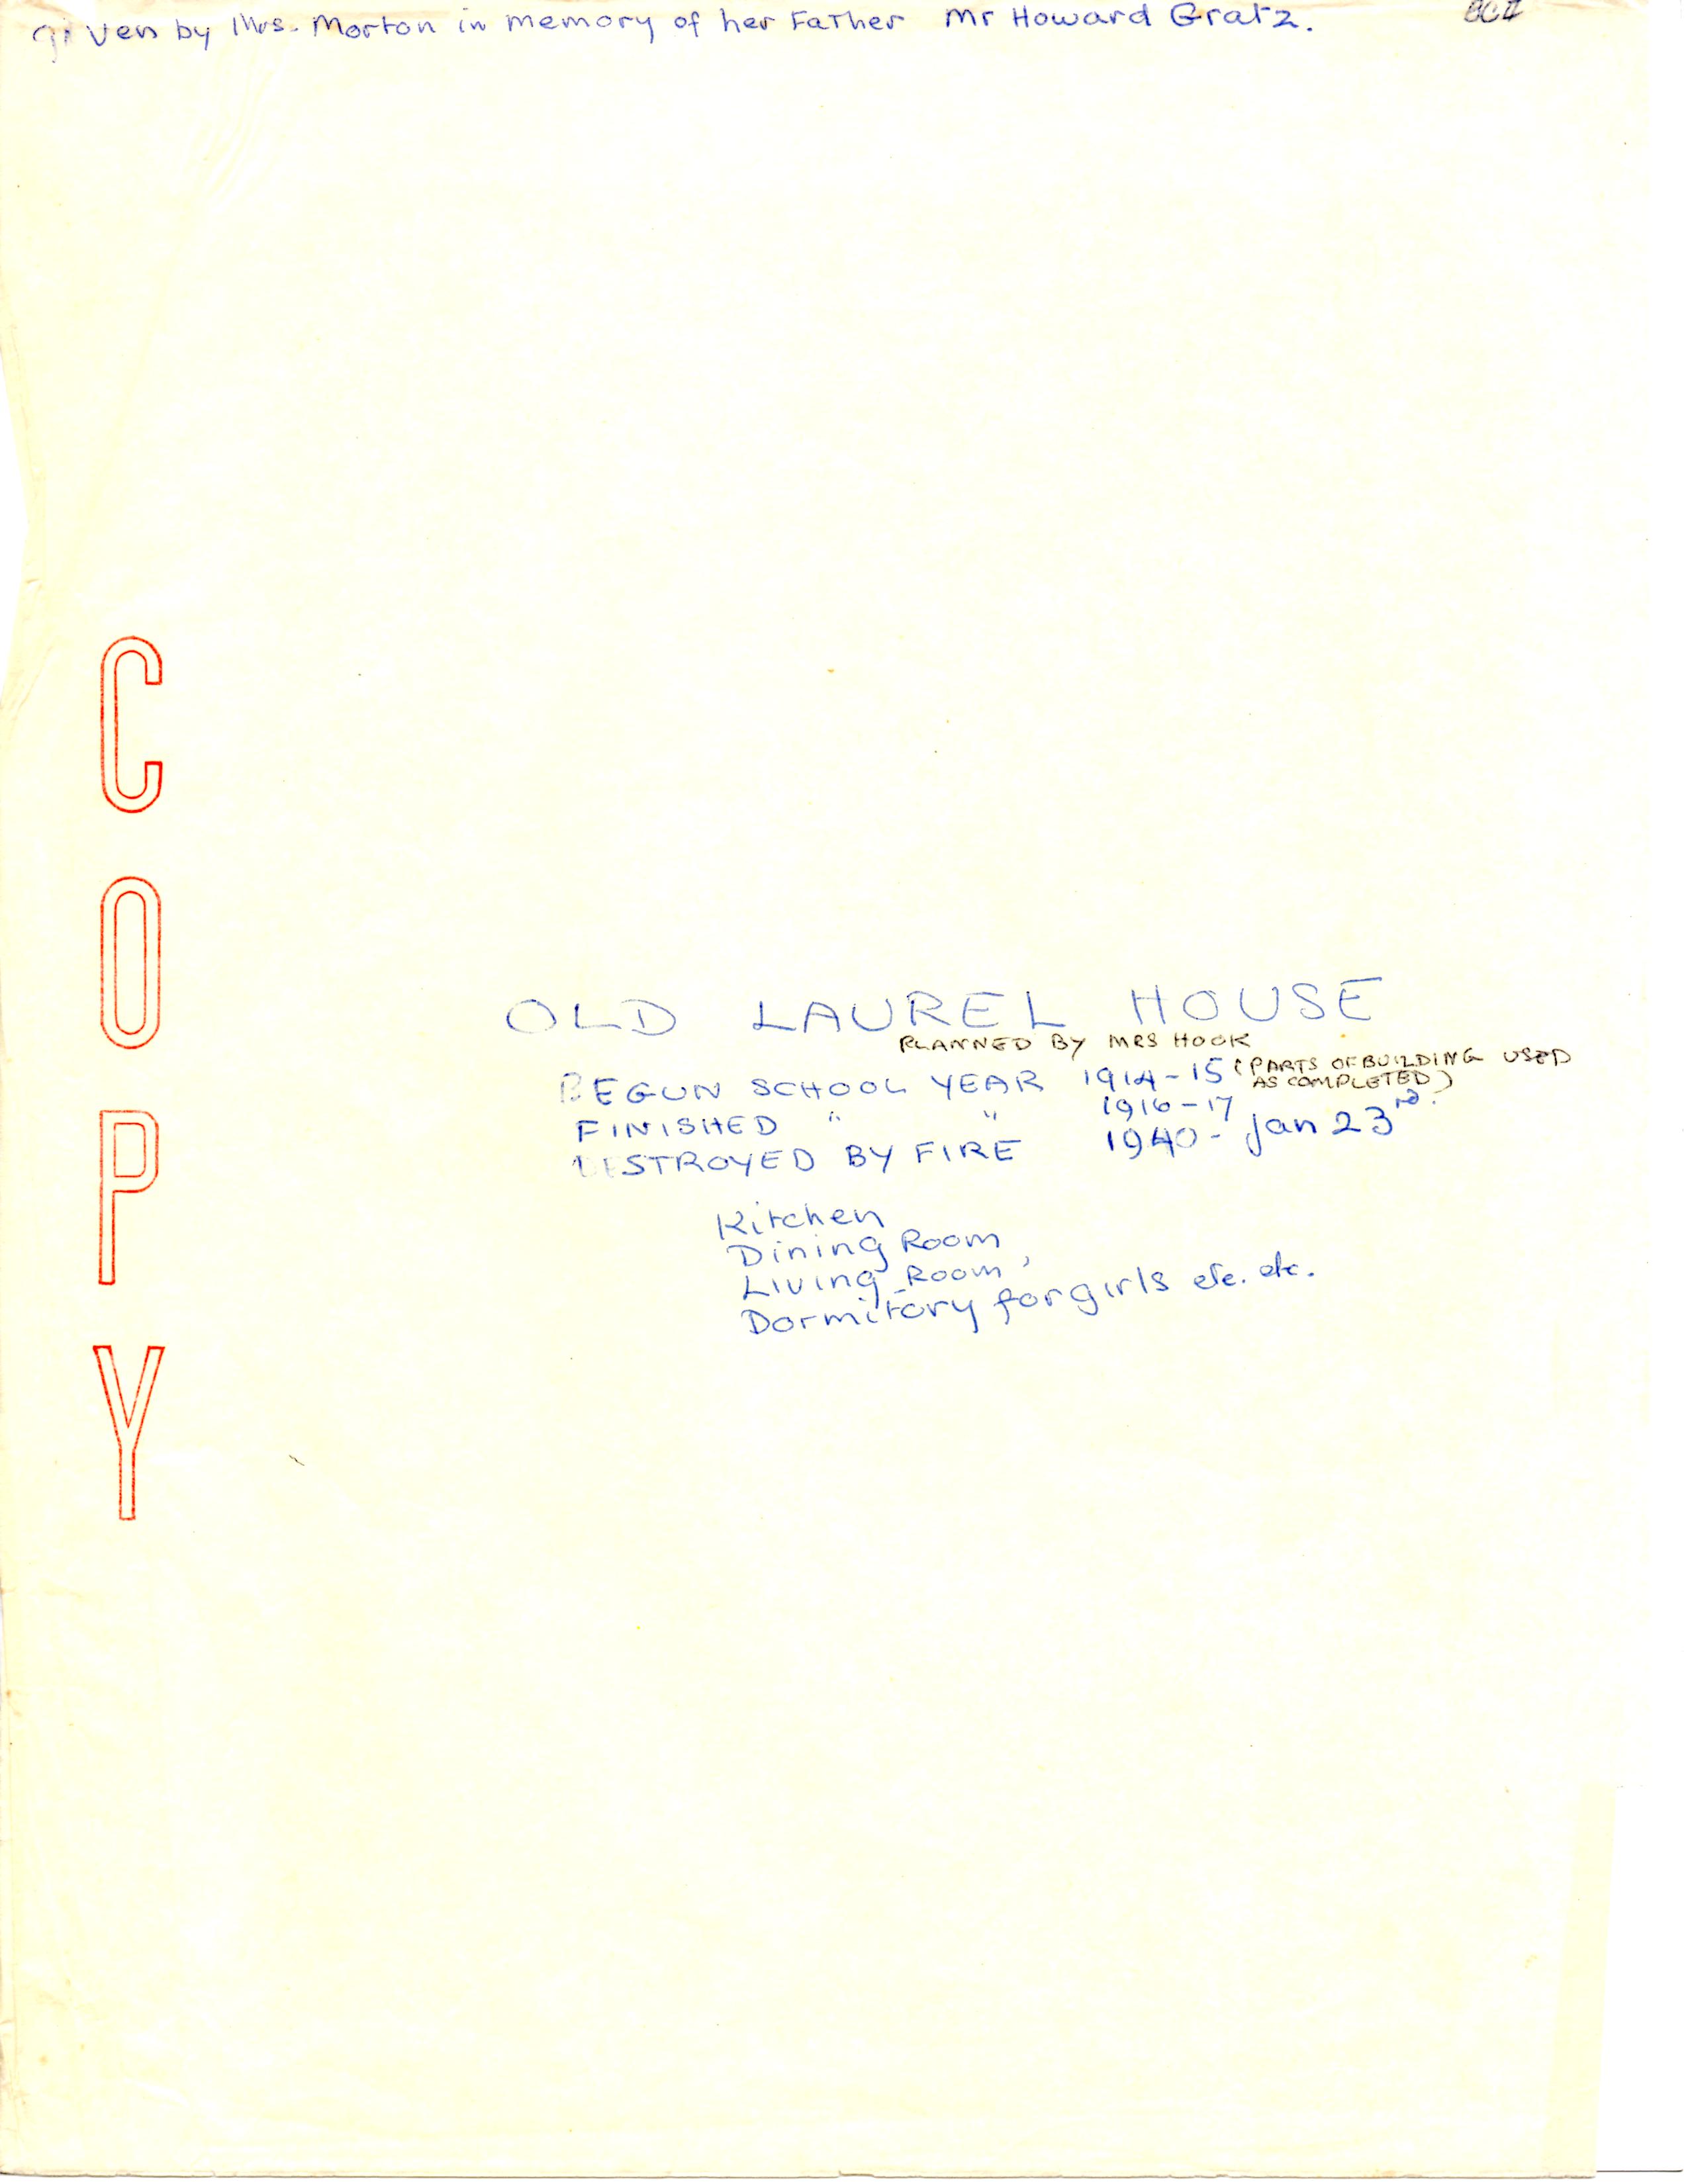 given by Mrs. Morton in memory of her Father Mr Howard Gratz.
COPY
OLD LAUREL HOUSE
PLANNED BY MRS HOOK
BEGUN SCHOOL YEAR 1914-15 (PARTS OF BUILDING USED
AS COMPLETED)
FINISHED " " 1916-17
DESTROYED BY FIRE 1940- Jan 23rd.
Kitchen
Dining Room
Living Room,
Dormitory for girls etc. etc.